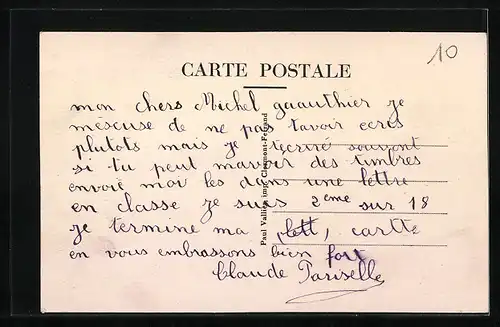 10
CARTE POSTALE
mon chers Michel gauuthier je
méscuse de ne pas tavoir ecris
plutots mais je tecriré souvent
si tu peut mavoir des timbres
envoie moi les dans une lettre
en classe je suis 2eme sur 18
je termine ma lett, cartte
en vous embrassons bien fort
Claude Pariselle
Paul Vallier, imp. Clermont-Ferrand